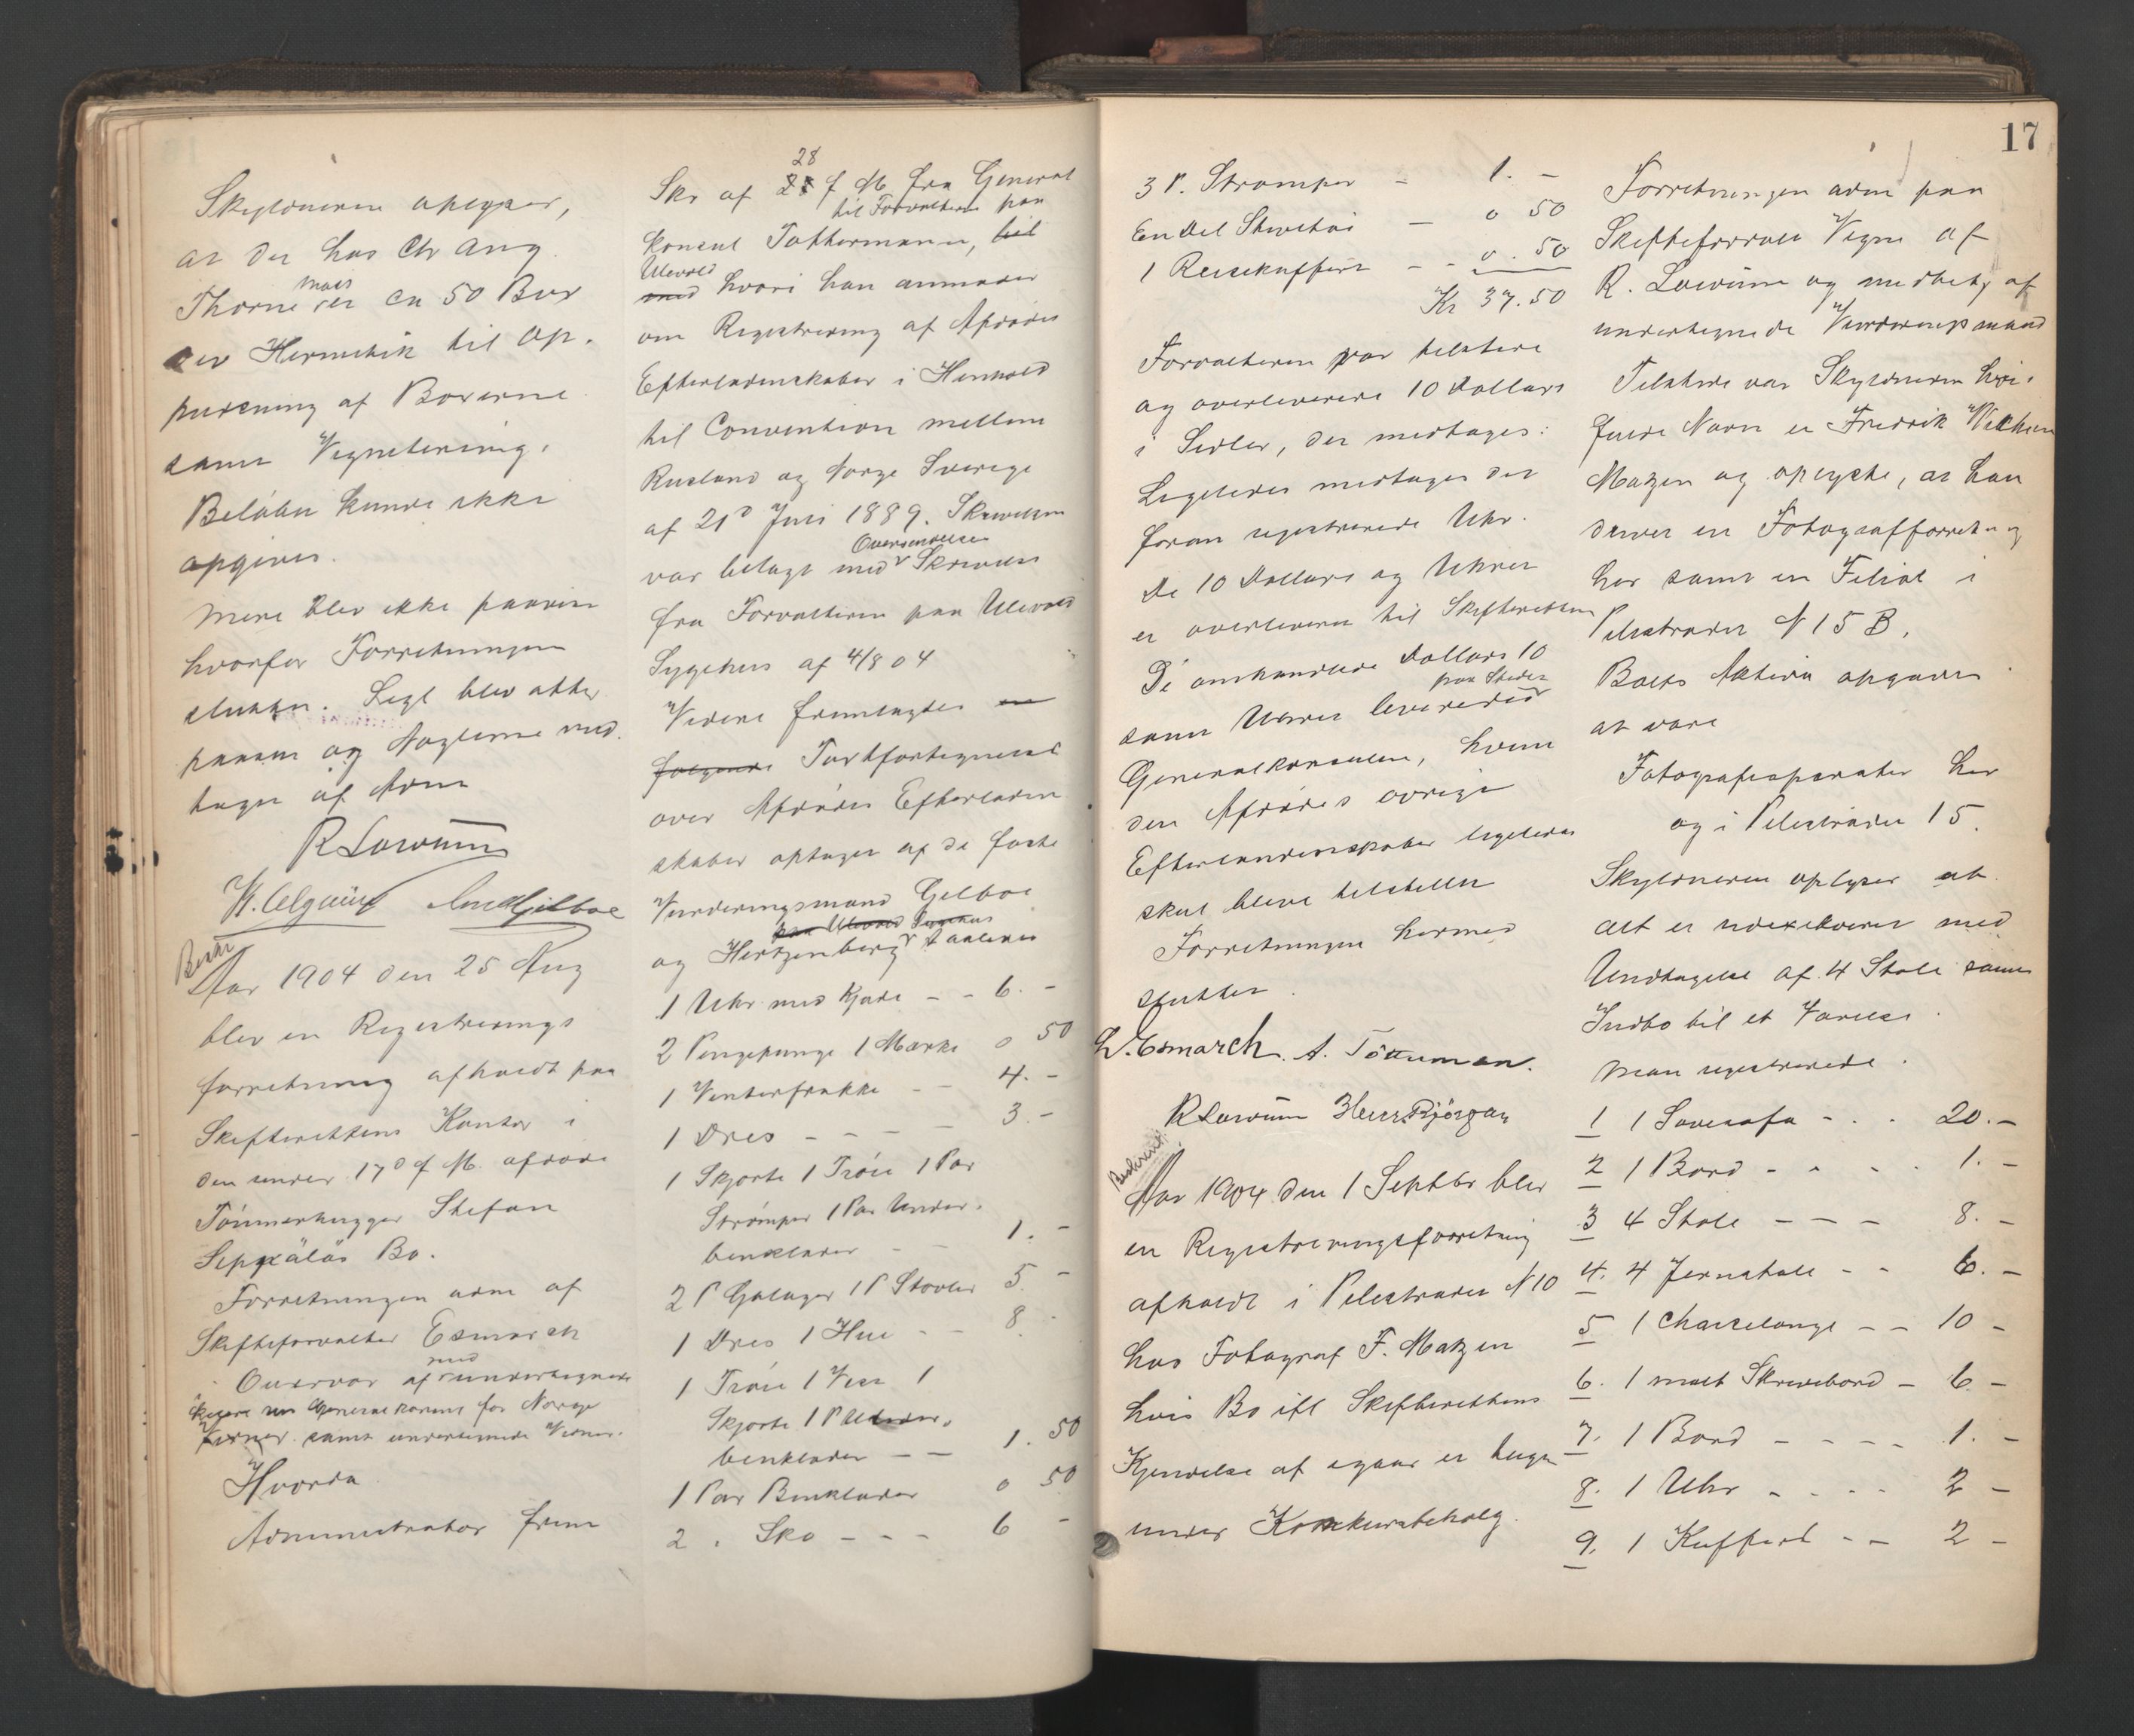 Skyldneren oplyser,
at der hos Chr Aug.
Thorne
maas
er ca 50 Bux
ser Hermetik til Op.
pudsning af Boxerne
samt Vignetering.
Beløbet kunde ikke
opgives.
Mere blev ikke paavist
hvorfor Forretningen
sluttet. Segl blev atter
paasat og Nøglerne med.
taget af Adm
R Lowum
And Gilboe
Beskr
Aar 1904 den 25 Aug
blev en Registrerings
forretning afholdt paa
Skifterettens Kontor i
den under 17d f M. afdøde
Tømmerhugger Stefan
Seppäläs Bo.
Forretningen adm af
Skifteforvalter Esmarch
Overvar af
med
undertegnede
Generalkonsul for Norge
samt undertegnede Vidner.
Hvorda
Administrator frem
28
Skr af f M. fra General
til Forvalteren paa
konsul Tøtterman, til
Ulevold
med hvori han anmoder
om Registrering af Afdødes
Efterladenskaber i Henhold
til Convention mellem
Rusland og Norge Sverige
af 21d Juni 1889. Skrivelsen
Oversendelses
var bilagt med Skrivelse
fra Forvalteren paa Ulevold
Sygehus af 4/8 04
Videre fremlagdes en
følgende Taxtfortegnelse
over Afdødes Efterladen
skaber optaget af de faste
Vurderingsmænd Gilboe
paa Ulevold Sygehus
og Hertzenberg saaledes
1 Uhr med Kjæde - - 6. -
2 Pengepunge 1 Mærke 0 50
1 Vinterfrakke - - 4. -
1 Dres - - - - 3. -
1 Skjorte 1 Trøie 1 Par
Strømper 1 Par Under.
benklæder - - 1. -
2 P Galoger 1 P Støvler 5. -
1 Dres 1 Hue - - 8. -
1 Trøie 1 Vest 1
Skjorte 1 P Under.
benklæder - - 1. 50
1 Par Benklæder 0 50
2 . Sko - - - 6 -
17
3 P. Strømper - 1. -
En del Skrivetøi - 0 50
1 Reisekuffert - - 0. 50
Kr 37.50
Forvalteren var tilstede
og overleverede 10 Dollars
i Sedler, der medtages:
Ligeledes medtages det
foran registrerede Uhr.
De 10 Dollars og Uhret
er overleveret til Skifteretten
De omhandlede Dollars 10
paa Stedet
samt Uhret leveredes
Generalkonsulen, hvem
den Afdødes øvrige
Efterladenskaber ligeledes
skal blive tilstillet
Forretningen hermed
sluttet.
L. Esmarch. A. Tötterman.
R Lowum
Beskrevet
Aar 1904 den 1 Septbr blev
en Registreringsforretning
afholdt i Pilestrædet N 10
hos Fotograf F. Matzen
hvis Bo ifl Skifterettens
Kjendelse af igaar er taget
under Konkursbehdlg.
Forretningen adm paa
Skifteforvalt Vegne af
R. Lowum og med betj. af
undertegnede Vurderingsmænd
Tilstede var Skyldneren hvis
fulde Navn er Fredrik Wilhelm
Matzen og oplyste, at han
driver en Fotografforretning
her samt en Filial i
Pilestrædet N 15 B.
Boets Aktiva opgaves
at være
Fotografiapparater her
og i Pilestrædet 15.
Skyldneren oplyser at
alt er udexekveret med
Undtagelse af 4 Stole samt
Indbo til et Værelse.
Man registrerede.
1 1 Sovesofa - . . 20. -
2 1 Bord - - . . 1. -
3 4 Stole - - - 8. -
4. 4 Jernstole - - 6. -
5 1 Chaiselonge - - 10 -
6. 1 malt Skrivebord - 6 -
7. 1 Bord - - - - 1. -
8. 1 Uhr - - - - 2 -
9. 1 Kuffert - - 2 -